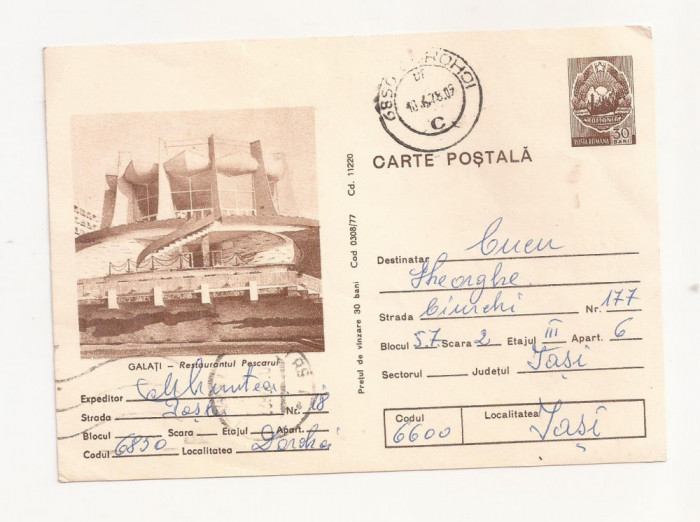 6850 DOROHOI
C
POSTA ROMANA 30 BANI
CARTE POȘTALĂ
GALAȚI — Restaurantul Pescarul
Expeditor Munteanu
Strada Nr. 18
Blocul Scara Etajul Apart.
Codul 6850 Localitatea Dorohoi
Prețul de vînzare 30 bani Cod 0308/77 Cd. 11220
Destinatar Cucu
Gheorghe
Strada Ciurchi Nr. 177
Blocul 57 Scara 2 Etajul III Apart. 6
Sectorul Județul Iași
Codul 6600 Localitatea Iași